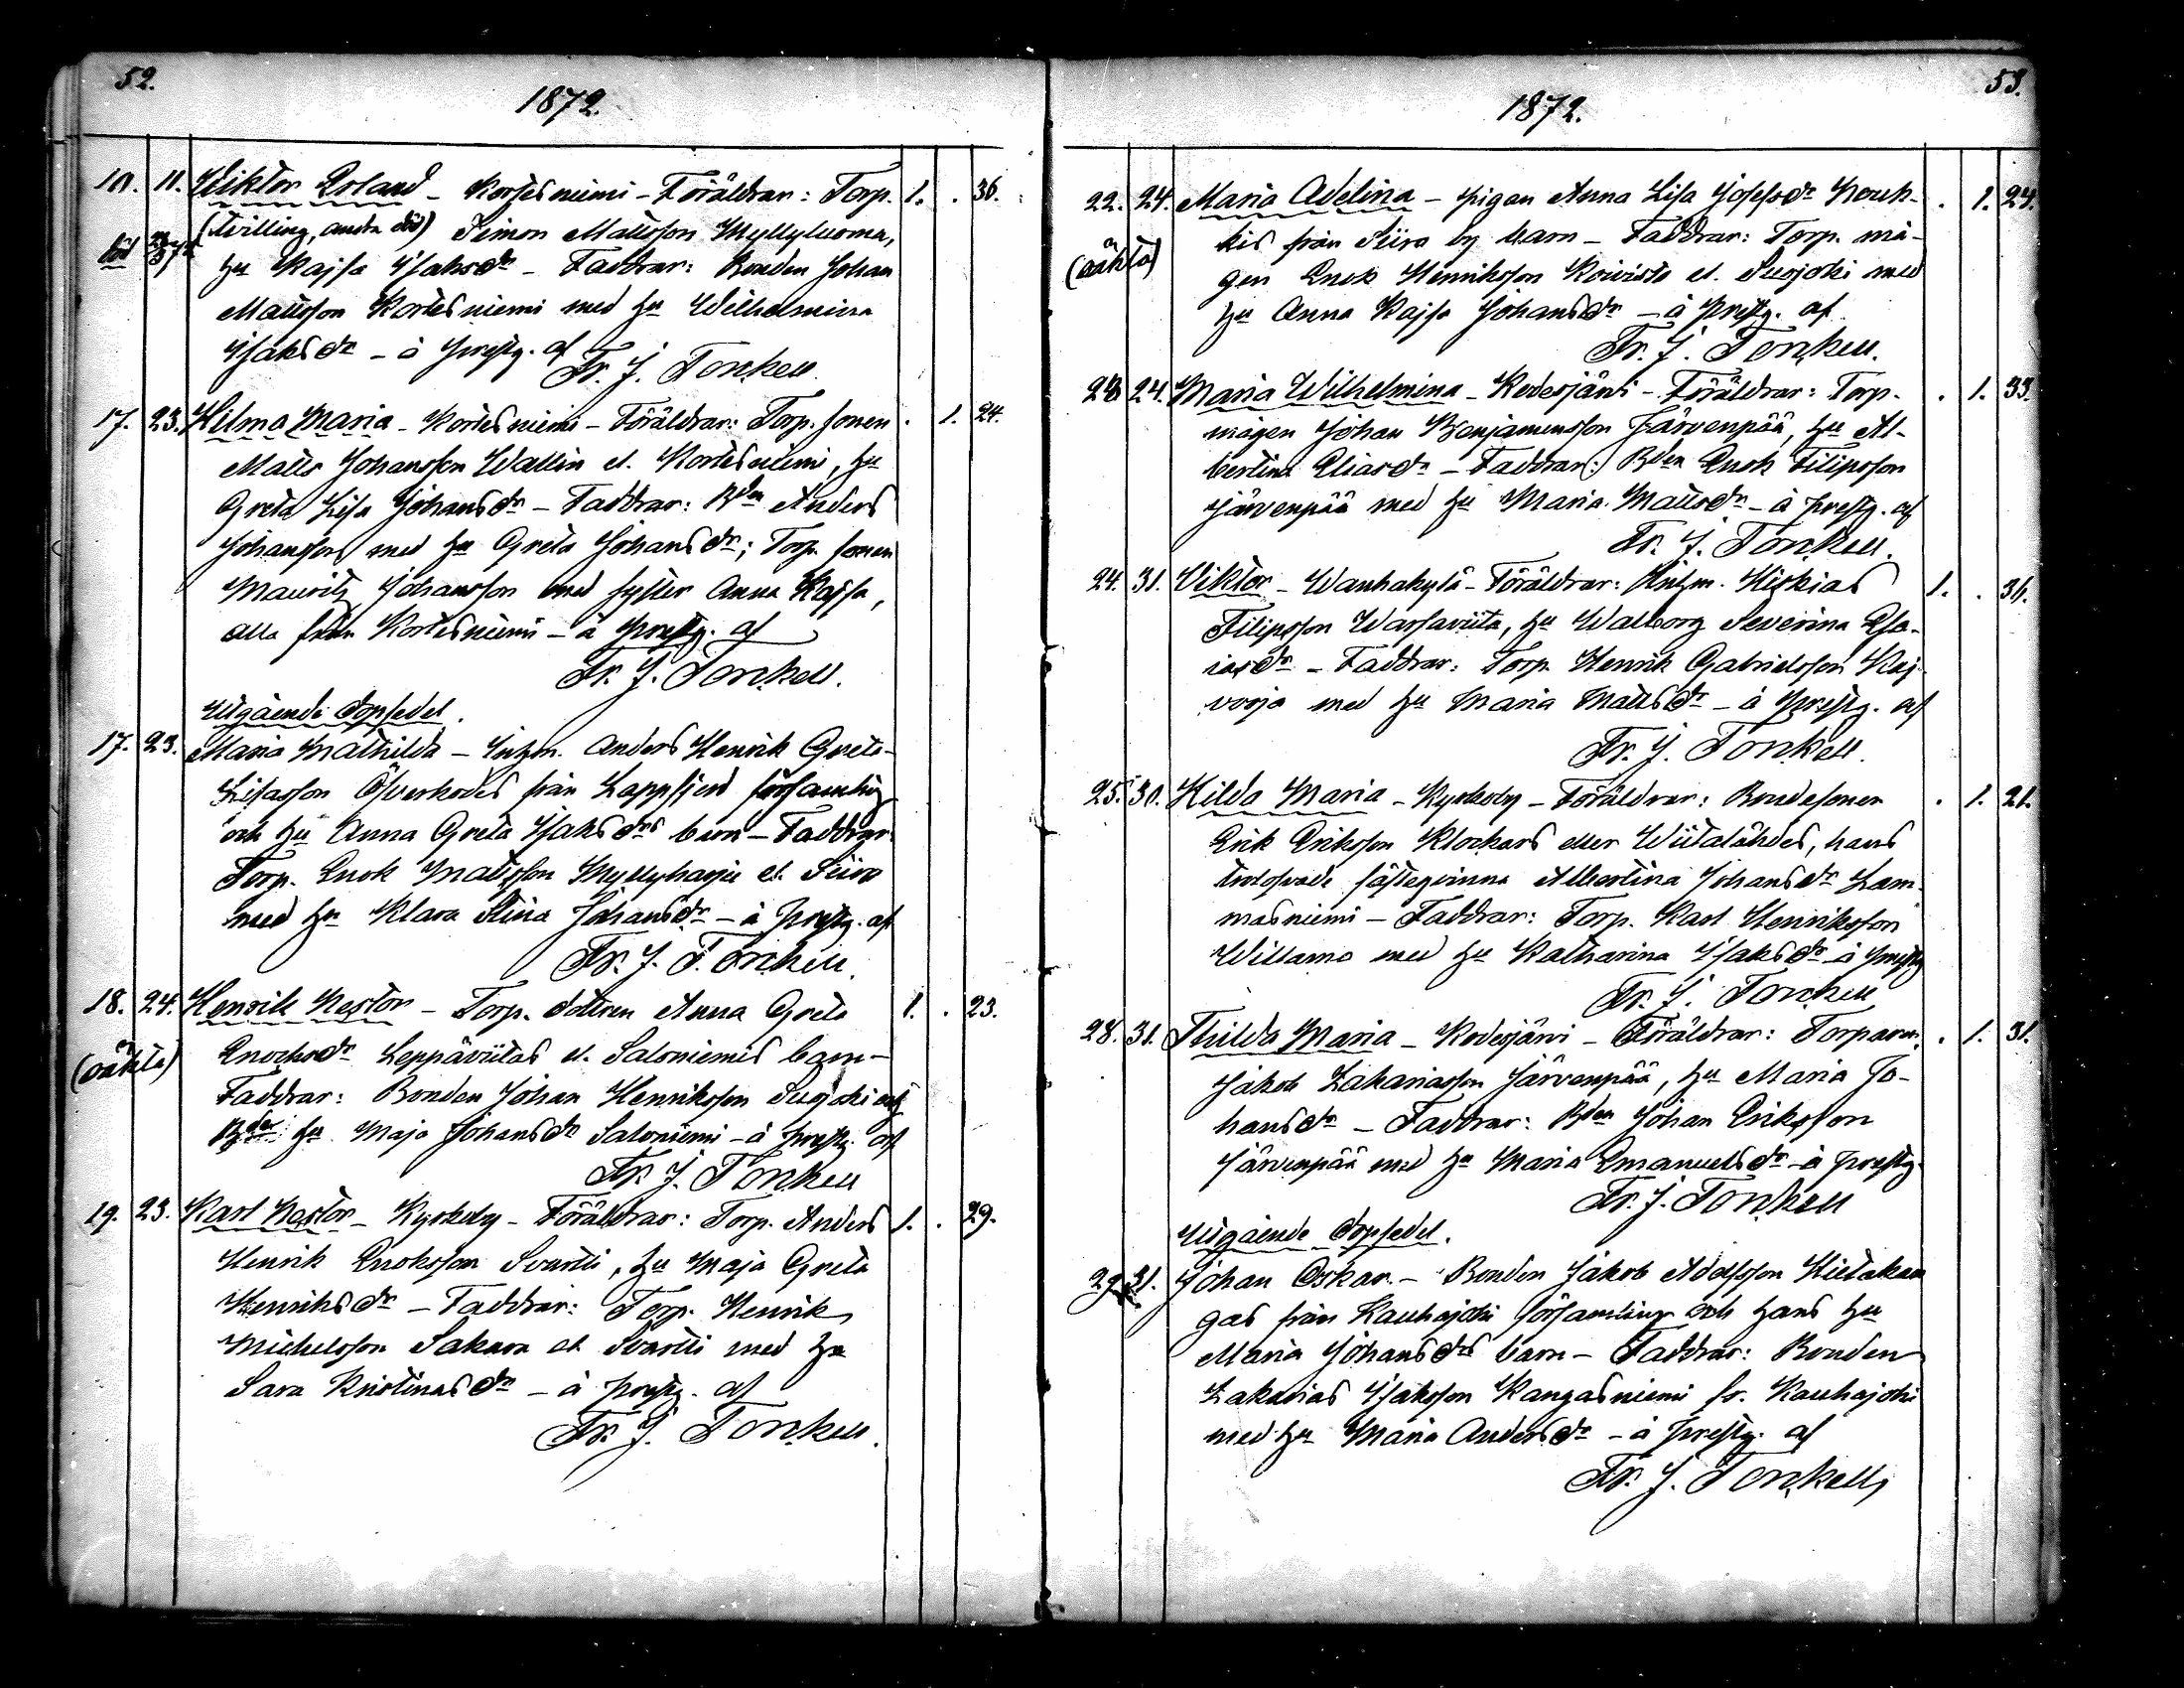 52.
1872.
10. 11. Wiktor Erland - Kortesniemi - Föräldrar: Torp. 1. . 36.
(tvilling, andra död) Simon Mattsson Myllyluoma,
död
hu Kajsa Isaksdr - Faddrar: Bonden Johan
Mattsson Kortesniemi med hu Wilhelmina
Isaksdr - å prestg. af
Fr. J. Tonkell.
17. 23. Hilma Maria - Kortesniemi - Föräldrar: Torp. sonen . 1. 24.
Matts Johansson Wallin el. Kortesniemi, hu
Greta Lisa Johansdr - Faddrar: Bden Anders
Johansson med hu Greta Johansdr; Torp. sonen
Maurits Johansson med syster Anna Kajsa,
alla från Kortesniemi - å prestg. af
Fr. J. Tonkell.
Utgående dopsedel.
17. 23. Maria Mathilda - Inhm. Anders Henrik Greta-
Lisasson från Lappfjerd församling
och hu Anna Greta Isaksdrs barn - Faddrar:
Torp. Enok Mattsson Myllyharju el. Siiro
med hu Klara Stina Johansdr - å prestg. af
Fr. J. Tonkell.
18. 24. Henrik Nestor - Torp. dottren Anna Greta 1. . 23.
(oäkta) Enochsdr Leppäviitas el. Saloniemis barn -
Faddrar: Bonden Johan Henriksson Suojoki och
Bdes hu Maja Johansdr Saloniemi - å prestg. af
Fr. J. Tonkell
19. 23. Karl Nestor - Kyrkoby - Föräldrar: Torp. Anders 1. . 29.
Henrik Enoksson Svartti, hu Maja Greta
Henriksdr - Faddrar: Torp. Henrik
Michelsson Sakara el. Svartti med hu
Sara Kristinasdr - å prestg. af
Fr. J. Tonkell.
53.
1872.
22. 24. Maria Adelina - pigan Anna Lisa Josefsdr . 1. 24.
(oäkta) kis från Siiro by barn - Faddrar: Torp. må-
gen Enok Henriksson Koivisto el. Suojoki med
hu Anna Kajsa Johansdr - å prestg. af
Fr. J. Tonkell.
23 24. Maria Wilhelmina - Koderjärvi - Föräldrar: Torp. . 1. 33.
mågen Johan Benjaminsson Järvenpää, hu Al-
bertina Eliasdr - Faddrar: Bden Enok Filipsson
Järvenpää med hu Maria Mattsdr - å prestg. af
Fr. J. Tonkell.
24. 31. Viktor - Wanhakylä - Föräldrar: Inhm. Hiskias 1. . 36.
Filipsson Warsaviita, hu Walborg Severina Esa-
iasdr - Faddrar: Torp. Henrik Gabrielsson Kaj-
vorja med hu Maria Mattsdr - å prestg. af
Fr. J. Tonkell.
25. 30. Hilda Maria - Kyrkoby - Föräldrar: Bondesonen . 1. 21.
Erik Eriksson Klockars eller Wiitalähdes, hans
trolofvade fästeqvinna Albertina Johansdr Lam-
masniemi - Faddrar: Torp. Karl Henriksson
Willamo med hu Katharina Isaksdr å prestg
Fr. J. Tonkell
28. 31. Thilda Maria - Koderjärvi - Föräldrar: Torparen . 1. 31.
Jakob Zakariasson Järvenpää, hu Maria Jo-
hansdr - Faddrar: Bden Johan Eriksson
Järvenpää med hu Maria Emanuelsdr - å prestg.
Fr. J. Tonkell
Utgående dopsedel.
29. 31. Johan Oskar - Bonden Jakob Adolfsson Hietakan
gas från Kauhajoki församling och hans hu
Maria Johansdrs barn - Faddrar: Bonden
Zakarias Isaksson Kangasniemi fr. Kauhajoki
med hu Maria Andersdr - å prestg. af
Fr. J. Tonkell